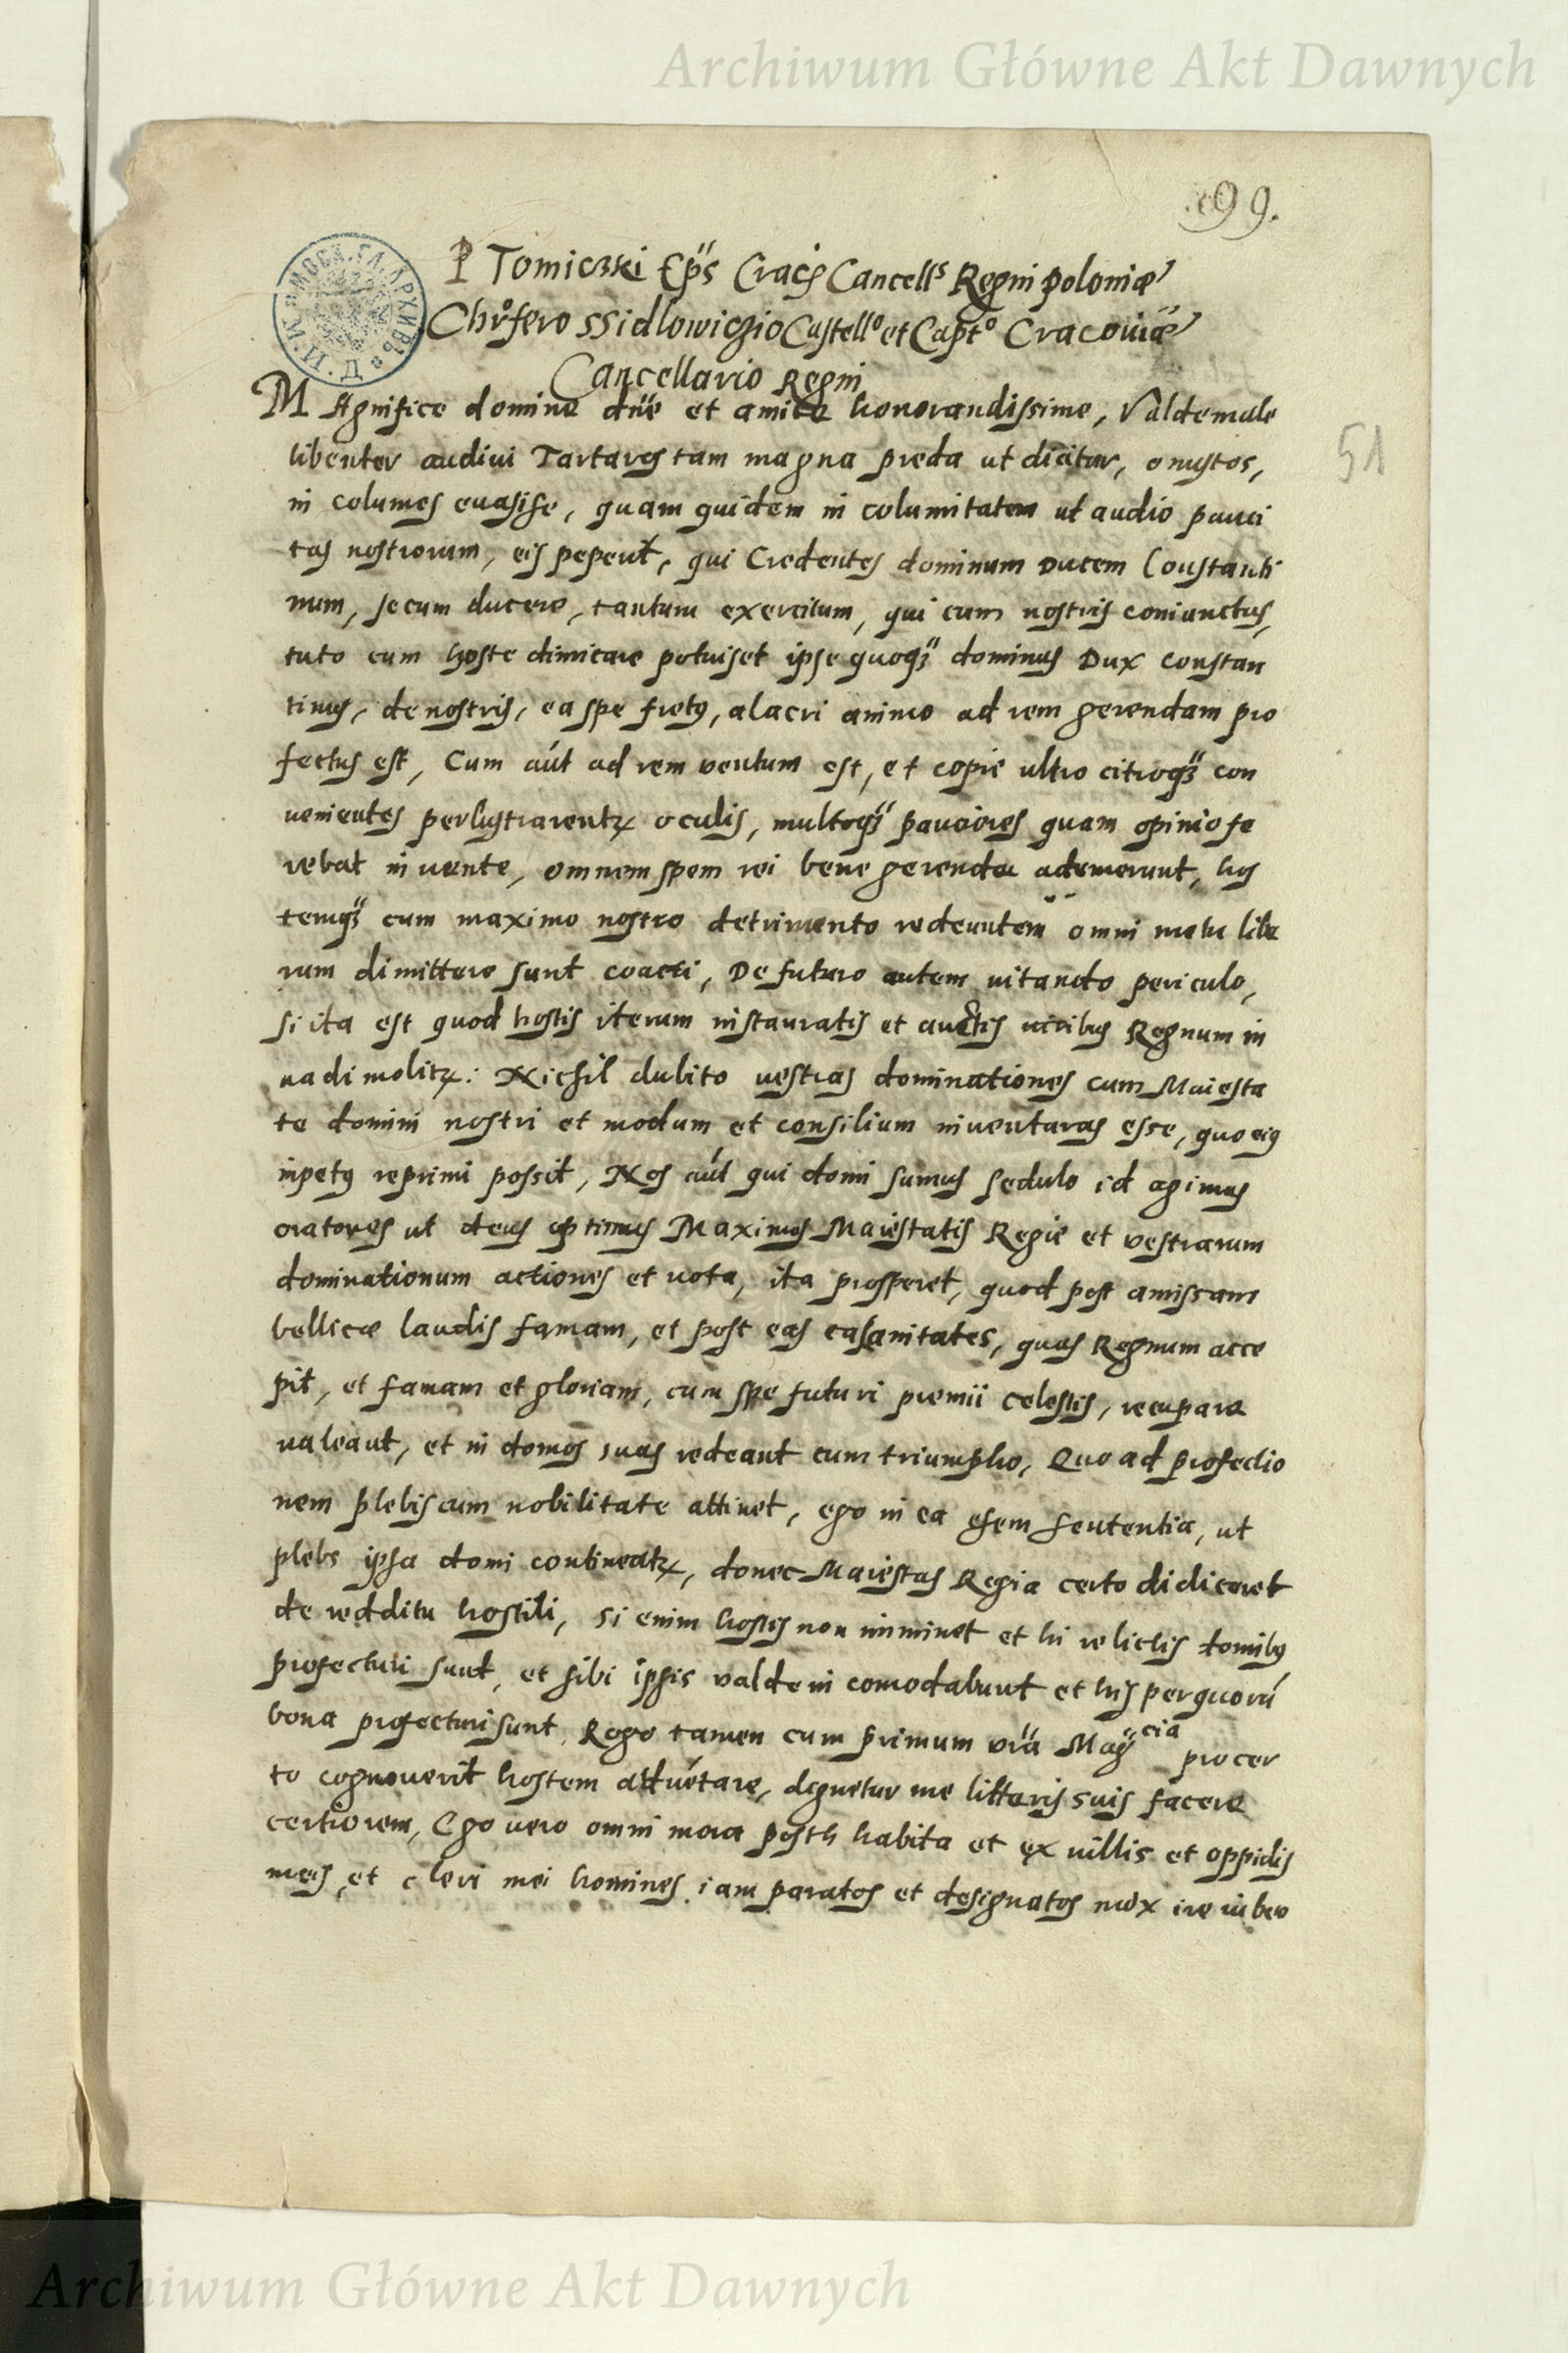 Archiwum Główne Akt Dawnych
99.
P Tomiczki Ep̃s Crac̃ Cancellˢ Regni Poloniæ
Chr̃ofero SSidlowiczio Castell⁰ et Capt⁰ Cracoviæ
Cancellario Regni
51
Magnifice domine dñe et amice honorandissime, Valde male
libenter audiui Tartaros tam magna preda ut dicitur, onustos,
in columes euasisse, quam quidem in columitatem ut audio pauci
tas nostrorum, eis peperit, qui Credentes dominum Ducem Constanti
num, secum ducere, tantum exercitum, qui cum nostris coniunctus,
tuto cum hoste dimicare potuiset ipse quoq₃ dominus Dux Constan
tinus, de nostris, ea spe fretus, alacri animo ad rem gerendam pro
fectus est, Cum aut́ ad rem ventum est, et copie ultro citroq₃ con
uenientes perlustrarentr oculis, multoq₃ pauciores quam opinio fe
rebat inuente, omnem spem rei bene gerendæ ademerunt, hos
temq₃ cum maximo nostro detrimento redeuntem omni metu libe
rum dimittere sunt coacti, De futuro autem uitando periculo,
si ita est quod hostis iterum instauratis et auctis uiribus Regnum in
uadi molitr: Nichil dubito uestras dominationes cum Maiesta
te domini nostri et modum et consilium inuenturas esse, quo eius
inpetus reprimi possit, Nos aut́ qui domi sumus sedulo id agimus
oratores ut deus optimus Maximos Maiestatis Regie et vestrarum
dominationum actiones et uota, ita prosperet, quod post amissam
bellicæ laudis famam, et post eas calamitates, quas Regnum acce
pit, et famam et gloriam, cum spe futuri premii celestis, recupare
ualeant, et in domos suas redeant cum triumpho, Quo ad profectio
nem plebis cum nobilitate attinet, ego in ea essem sententia, ut
plebs ipsa domi contineatr, donec Maiestas Regia certo didiceret
de redditu hostili, si enim hostis non iminet et hi relictis domibus
profecturi sunt, et sibi ipsis valde in comodabunt et his per quorū
bona profecturi sunt, Rogo tamen cum primum vrã Mag̃cia pro cer
to cognouerit hostem aduẽtare, dignetur me litteris suis facere
certiorem, Ego uero omni mora posth habita et ex uillis et oppidis
meis et cleri mei homines iam paratos et designatos mox ire iubeo
Archiwum Główne Akt Dawnych